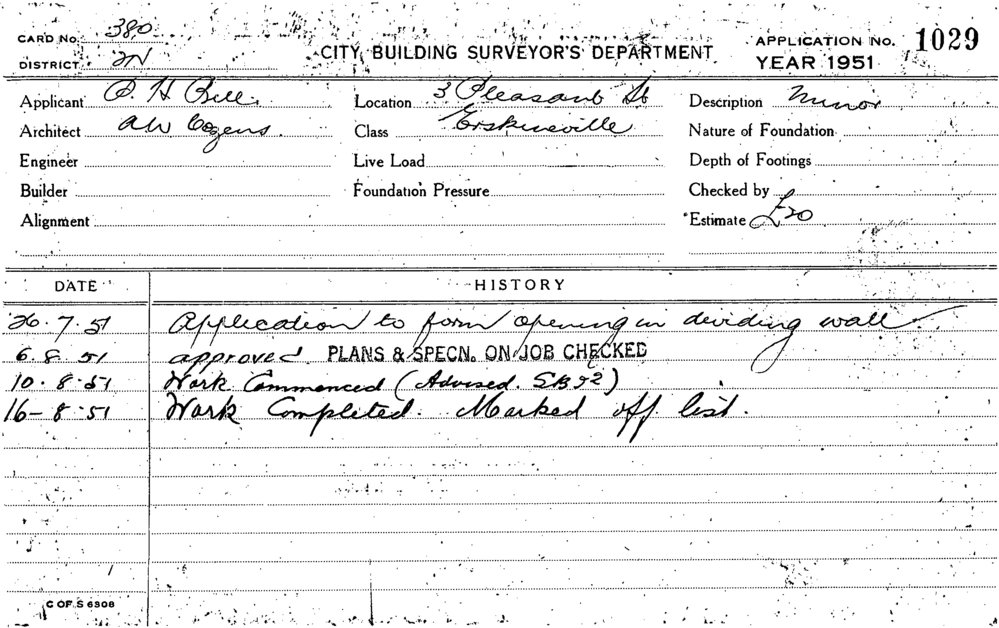 CARD No. 380
DISTRICT 2N
CITY BUILDING SURVEYOR'S DEPARTMENT
APPLICATION No. 1029
YEAR 1951
Applicant P. H. Bell Location 3 Pleasant St Description Minor
Architect AW Cozens. Class Erskineville Nature of Foundation
Engineer Live Load Depth of Footings
Builder Foundation Pressure Checked by
Alignment Estimate £20
DATE HISTORY
26.7.51 Application to form opening in dividing wall.
6.8.51 approved PLANS & SPECN. ON JOB CHECKED
10.8.51 Work Commenced (Advised.
16-8-51 Work Completed. Marked off list.
C OF S 6308